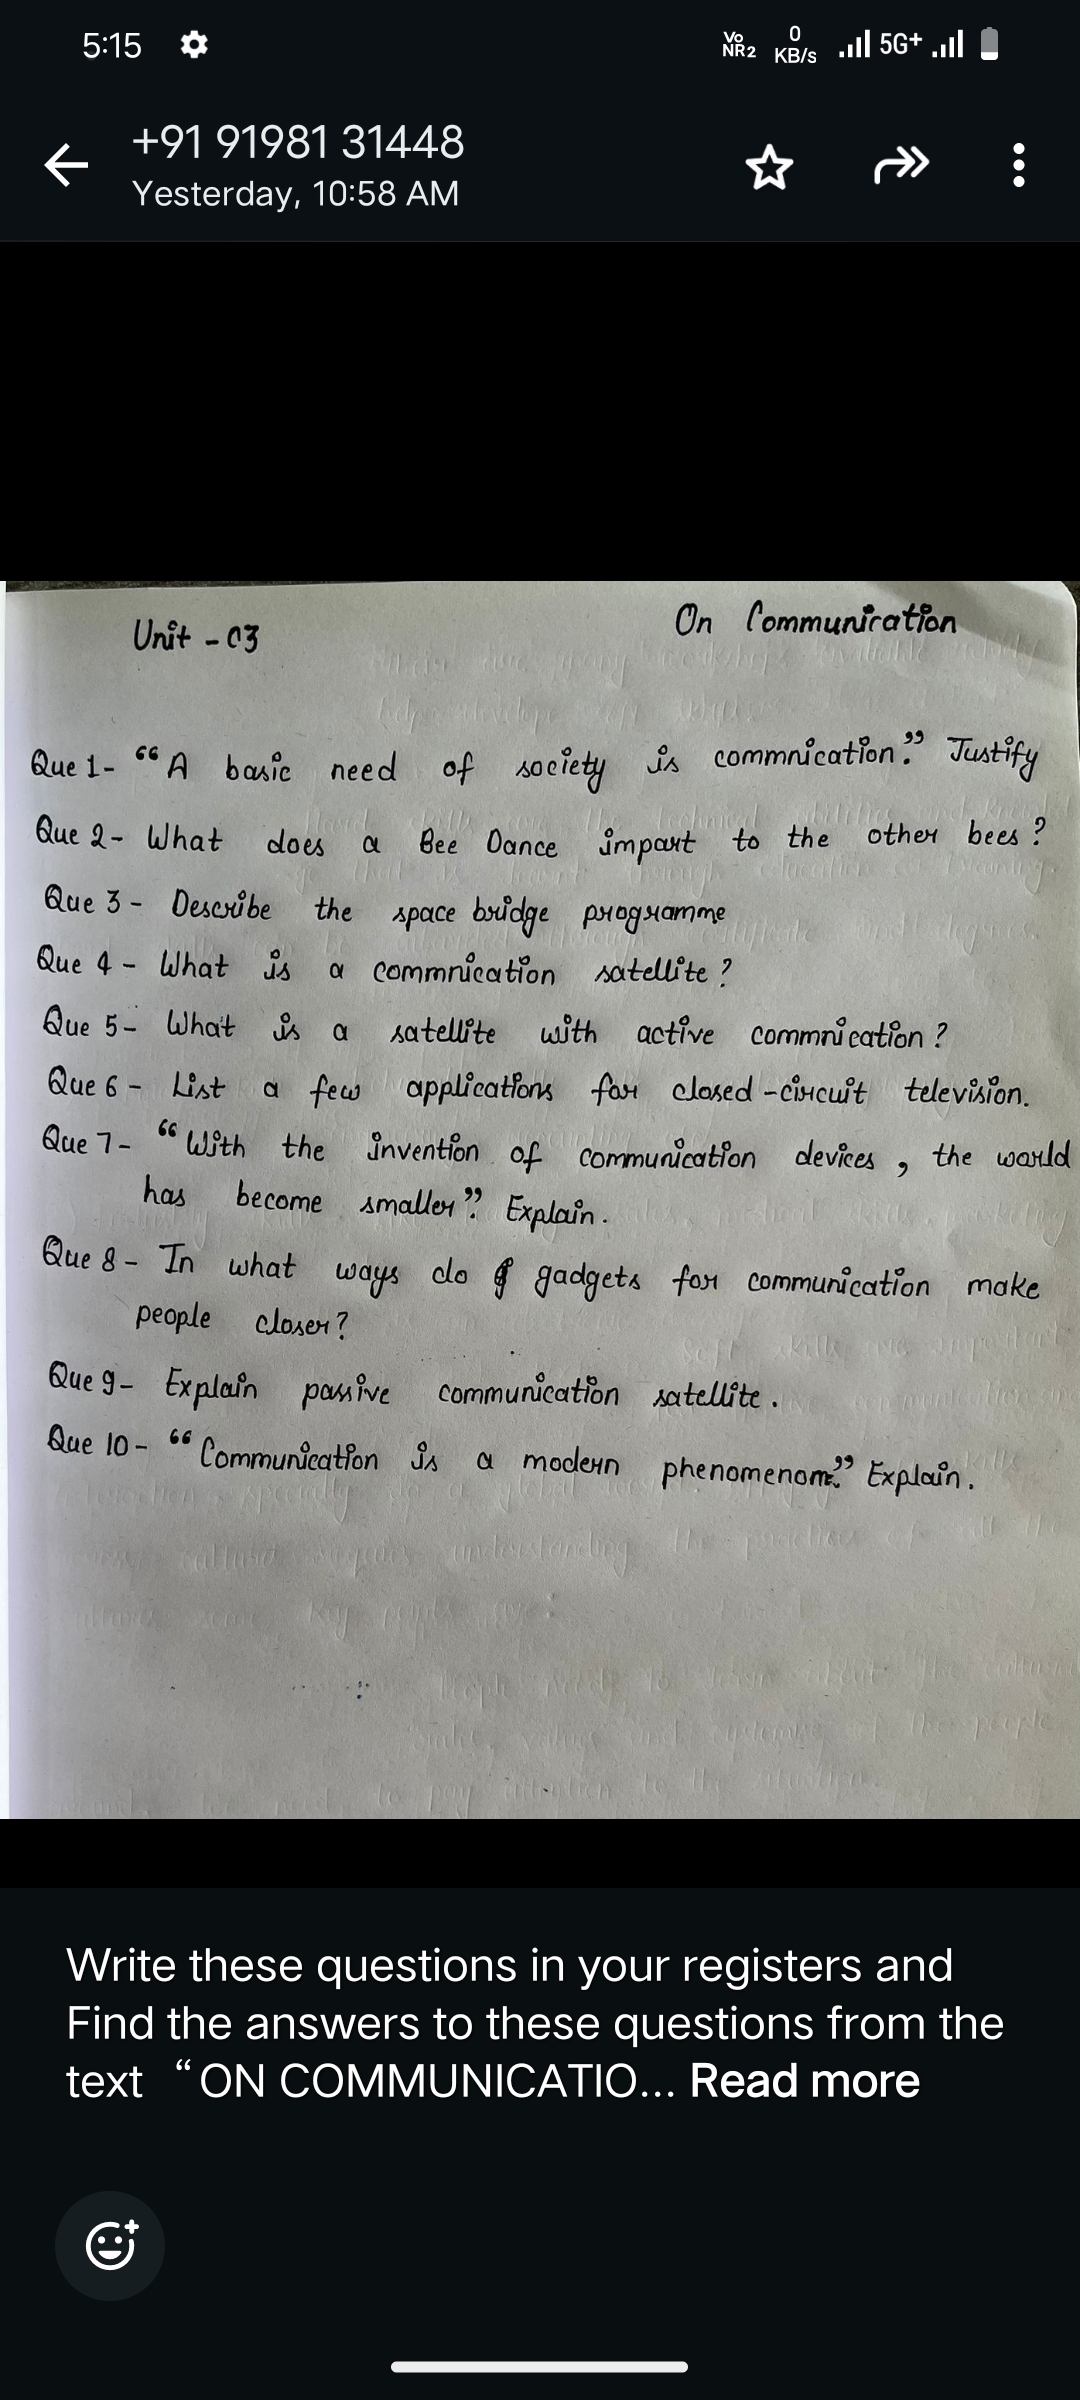 5:15
Vo NR2 0 KB/s 5G+
+91 91981 31448
Yesterday, 10:58 AM
Unit - 03 On Communication
Que 1- "A basic need of society is commnication." Justify
Que 2- What does a Bee Dance impart to the other bees?
Que 3 - Describe the space bridge programme
Que 4 - What is a commnication satellite?
Que 5- What is a satellite with active commnication?
Que 6 - List a few applications for closed-circuit television.
Que 7- "With the invention of communication devices, the world
has become smaller". Explain.
Que 8 - In what ways do gadgets for communication make
people closer?
Que 9- Explain passive communication satellite.
Que 10- "Communication is a modern phenomenom." Explain.
Write these questions in your registers and
Find the answers to these questions from the
text “ON COMMUNICATIO... Read more